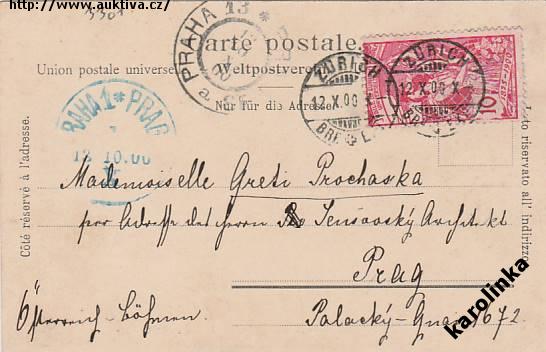 http://www.auktiva.cz/
PRAHA 13
Carte postale.
Union postale universelle
Weltpostverein
Nur für die Adresse.
ZÜRICH
12.X.00
BRF.
ZÜRICH
12.X.00
BRF.
1875-1900
10
PRAHA 1 * PRAG
13 10.00
Côté réservé à l'adresse.
Lato riservato all' indirizzo.
Mademoiselle Greti Prochaska
per Adresse des Herrn Architekt
Prag
Österreich-Böhmen.
Palacký-Quai 1672
karolinka